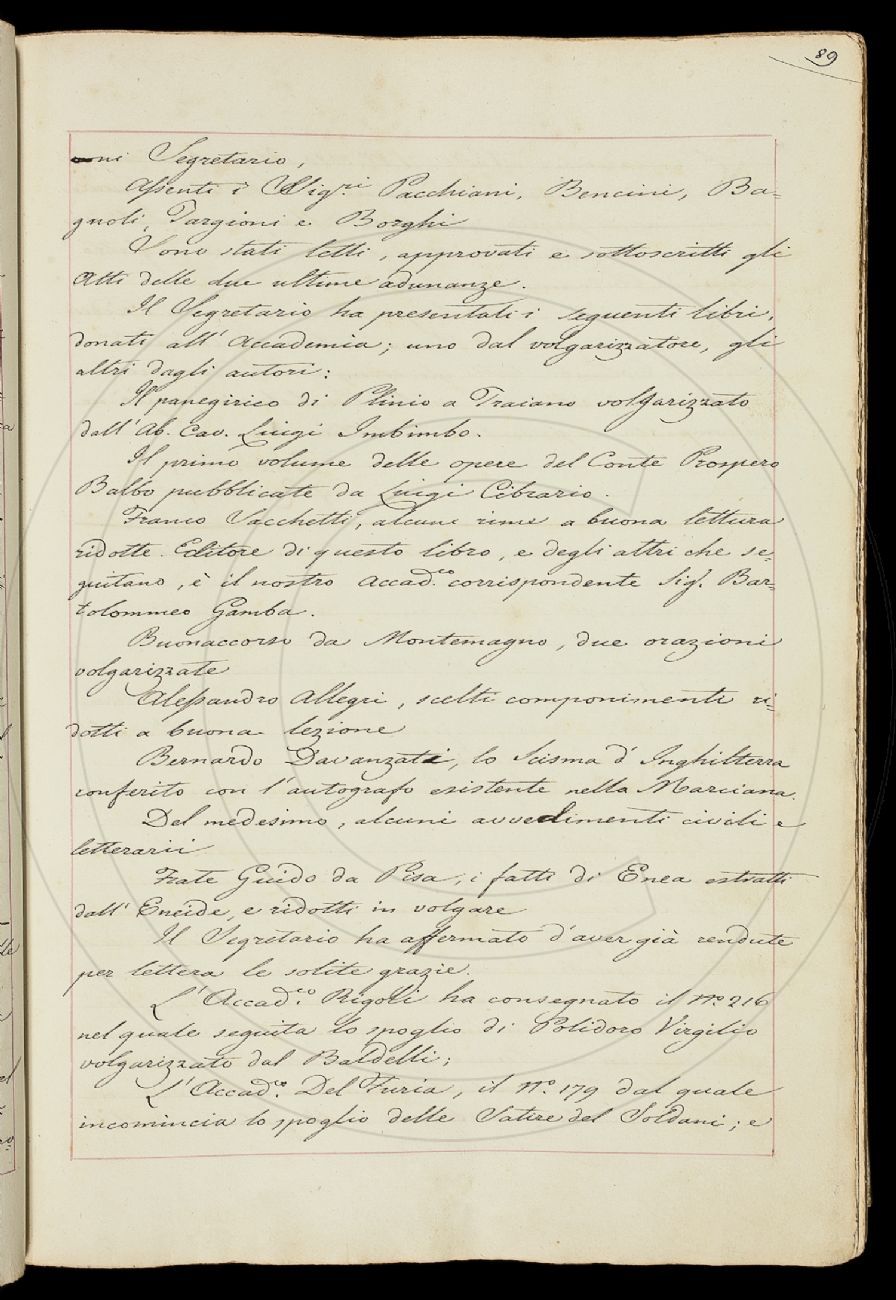 89
oni Segretario,
Assenti i Sig.ri Pacchiani, Bencini, Ba=
gnoli, Targioni e Borghi
Sono stati letti, approvati e sottoscritti gli
Atti delle due ultime adunanze.
Il Segretario ha presentati i seguenti libri,
donati all' Accademia; uno dal volgarizzatore, gli
altri dagli autori:
Il panegirico di Plinio a Traiano volgarizzato
dall' Ab. Cav. Luigi Imbimbo.
Il primo volume delle opere del Conte Prospero
Balbo pubblicate da Luigi Cibrario.
Franco Sacchetti, alcune rime a buona lettura
ridotte. Editore di questo libro, e degli altri che se=
guitano, è il nostro Accad.co corrispondente Sig. Bar=
tolommeo Gamba.
Buonaccorso da Montemagno, due orazioni
volgarizzate
Alessandro Allegri, scelti componimenti ri=
dotti a buona lezione
Bernardo Davanzati, lo Scisma d' Inghilterra
conferito con l' autografo esistente nella Marciana.
Del medesimo, alcuni avvedimenti civili e
letterarii
Frate Guido da Pisa, i fatti di Enea estratti
dall' Eneide, e ridotti in volgare
Il Segretario ha affermato d' aver già rendute
per lettera le solite grazie.
L' Accad.co Rigoli ha consegnato il N.o 216
nel quale seguita lo spoglio di Polidoro Virgilio
volgarizzato dal Baldelli;
L' Accad.co Del Furia, il N.o 179 dal quale
incomincia lo spoglio delle Satire del Soldani; e